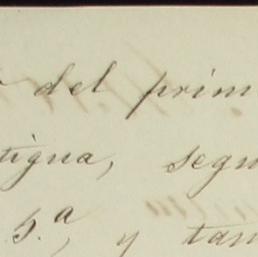 del prim
tigua, segu
5.ª, y tam